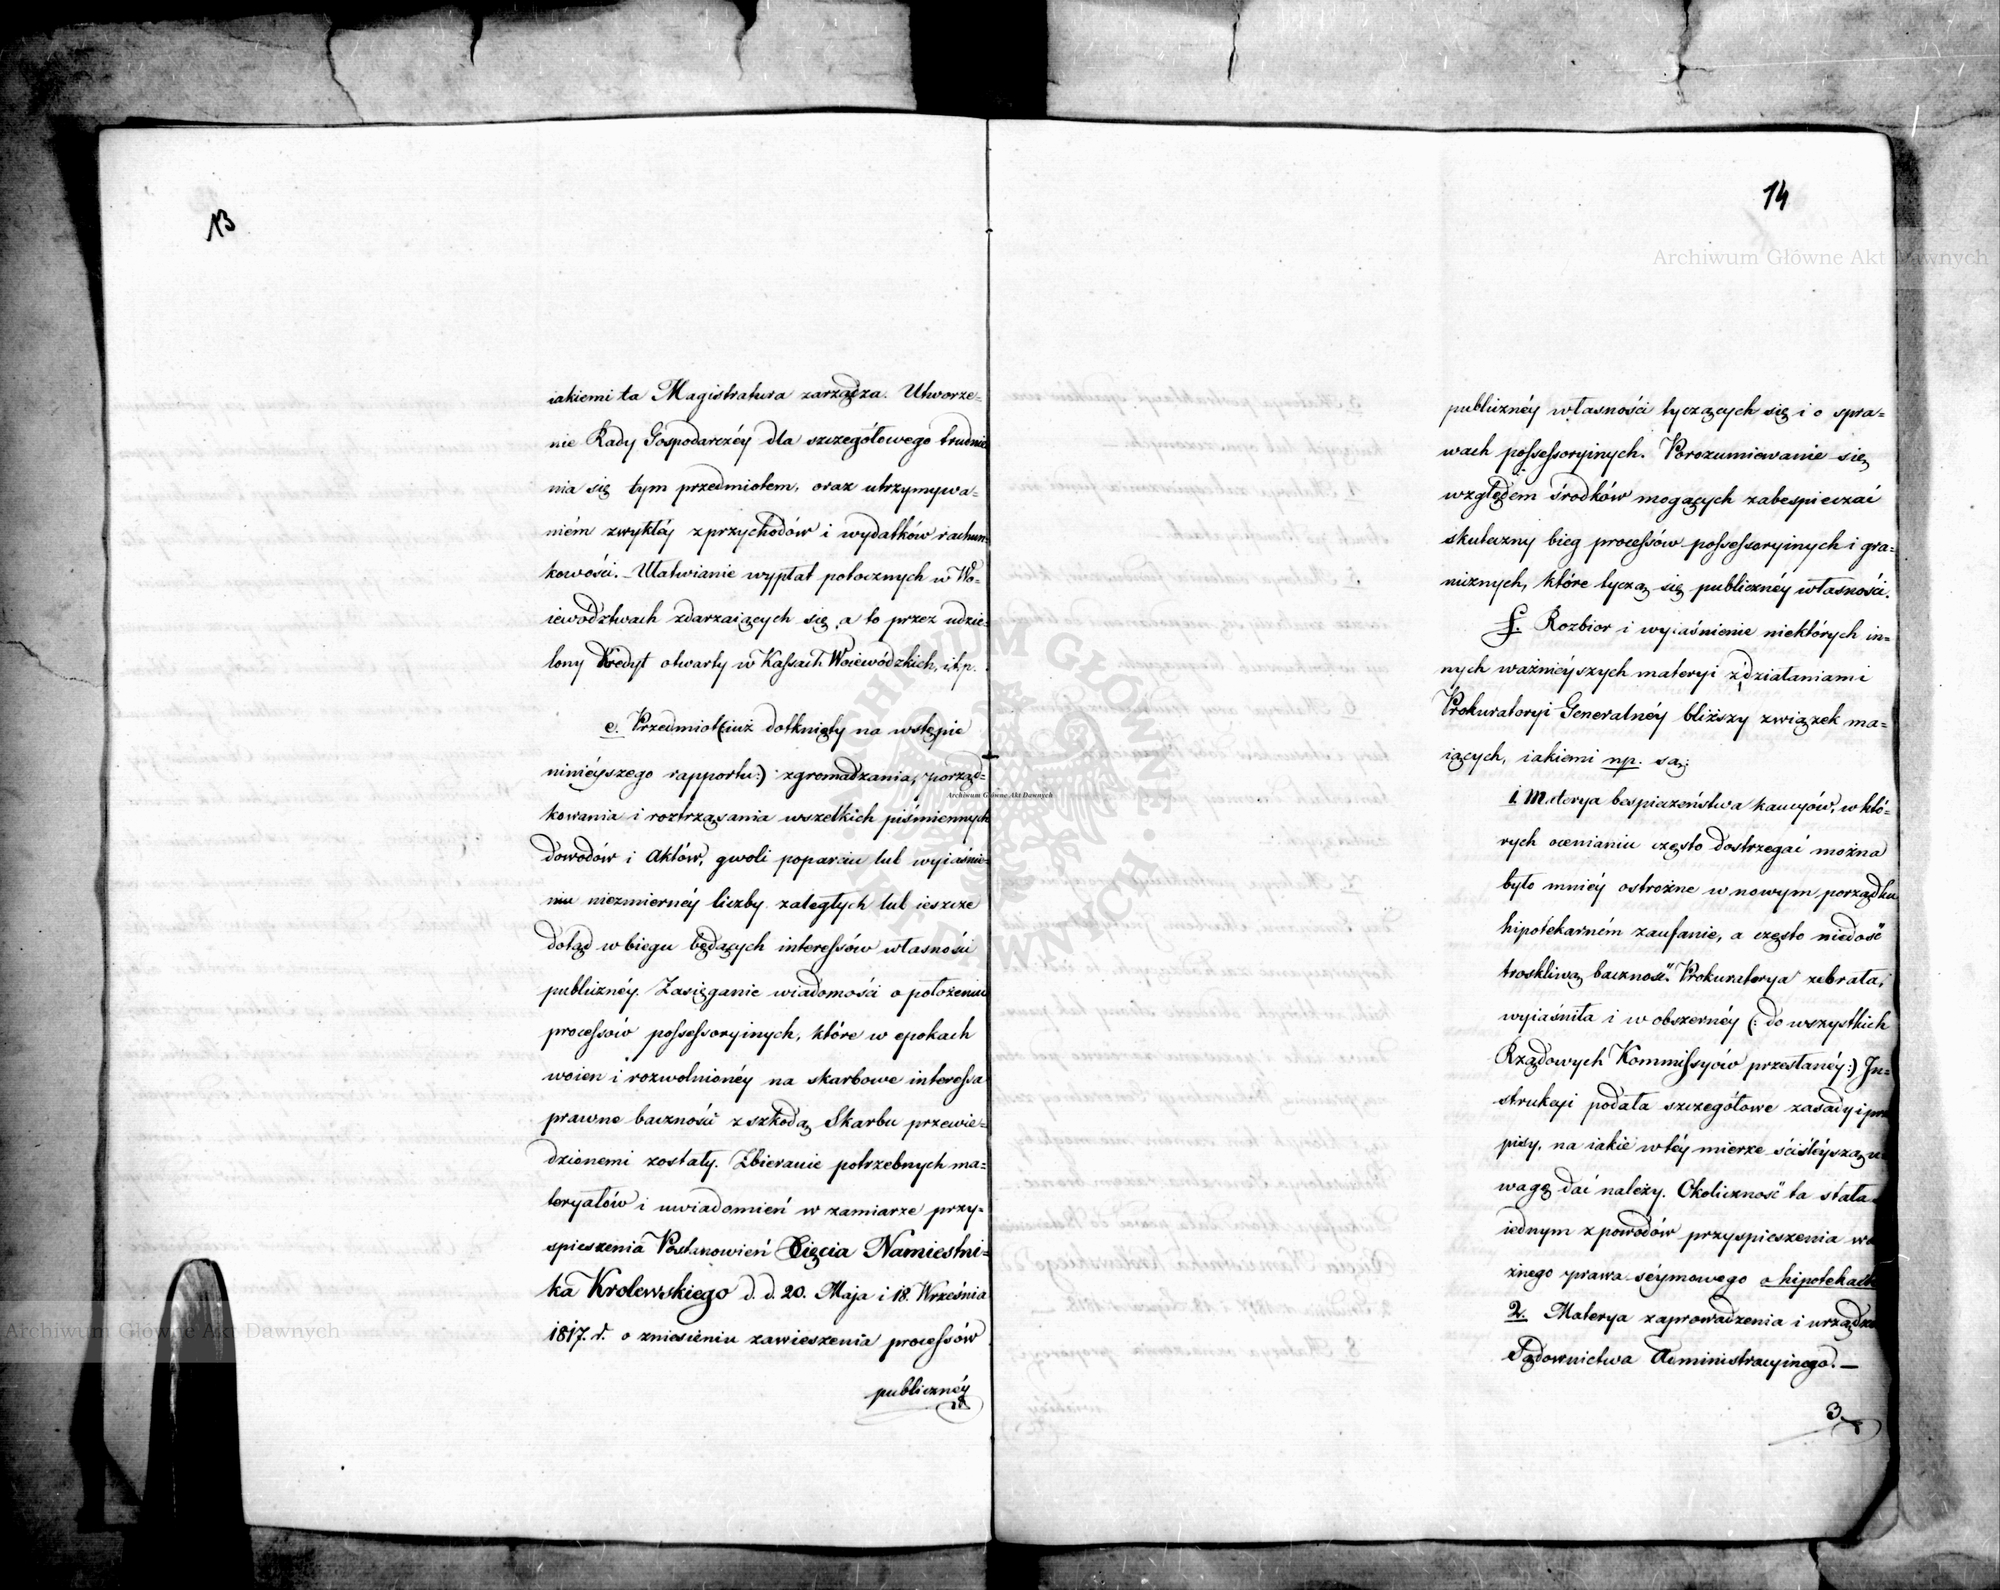 13
iakiemi ta Magistratura zarządza. Utworze=
nie Rady Gospodarczéy dla szczegółowego trudnie
nia się tym przedmiotem, oraz utrzymywa=
niém zwykłéy z przychodów i wydatków rachun=
kowości. – Ułatwianie wypłat potocznych w Wo=
iewództwach zdarzaiących się, a to przez udzie=
lony Kredyt otwarty w Kassach Woiewódzkich, itp.
e. Przedmiot (iuż dotknięty na wstępie
ninieyszego rapportu:) zgromadzania, porząd=
kowania i roztrząsania wszelkich piśmiennych
dowodów i Aktów, gwoli poparciu lub wyiaśnie=
niu niezmiernéy liczby zaległych lub ieszcze
dotąd w biegu będących interessów własności
publicznéy. Zasięganie wiadomości o położeniu
processów possessoryinych, które w epokach
woien i rozwolnionéy na skarbowe interessa
prawne baczności z szkodą Skarbu przewie=
dzionemi zostały. Zbieranie potrzebnych ma=
teryałów i uwiadomień w zamiarze przy=
spieszenia Postanowień Xięcia Namiestni=
ka Krolewskiego d. d. 20. Maja i 18. Września
1817. r. o zniesieniu zawieszenia processów
publicznéy
14
publicznéy własności tyczących się i o spra=
wach possessoryinych. Porozumiewanie się
względem środków mogących zabespieczać
skuteczny bieg processów possessoryinych i gra=
nicznych, które tyczą się publicznéy własności.
f. Rozbior i wyiaśnienie niektórych in=
nych ważnieyszych materyi z działaniami
Prokuratoryi Generalnéy bliższy związek ma=
iących, iakiemi np. są:
1. Materya bespieczeństwa kaucyów, w któ=
rych ocenianiu często dostrzegać można
było mniéy ostrożne w nowym porządku
hipotekarném zaufanie, a często niedość
troskliwą baczność. Prokuratorya zebrała,
wyiaśniła i w obszernéy (: do wszystkich
Rządowych Kommissyów przesłanéy:) In=
strukcyi podała szczegółowe zasady i prze
pisy, na iakie w téy mierze ściśléyszą u
wagę dać należy. Okoliczność ta stała
iednym z powodów przyspieszenia wa
żnego prawa séymowego o hipotekach
2. Materya zaprowadzenia i urządze
Sądownictwa Administracyinego. –
3.
Archiwum Główne Akt Dawnych
Archiwum Główne Akt Dawnych
Archiwum Główne Akt Dawnych
ARCHIWUM GŁÓWNE AKT DAWNYCH